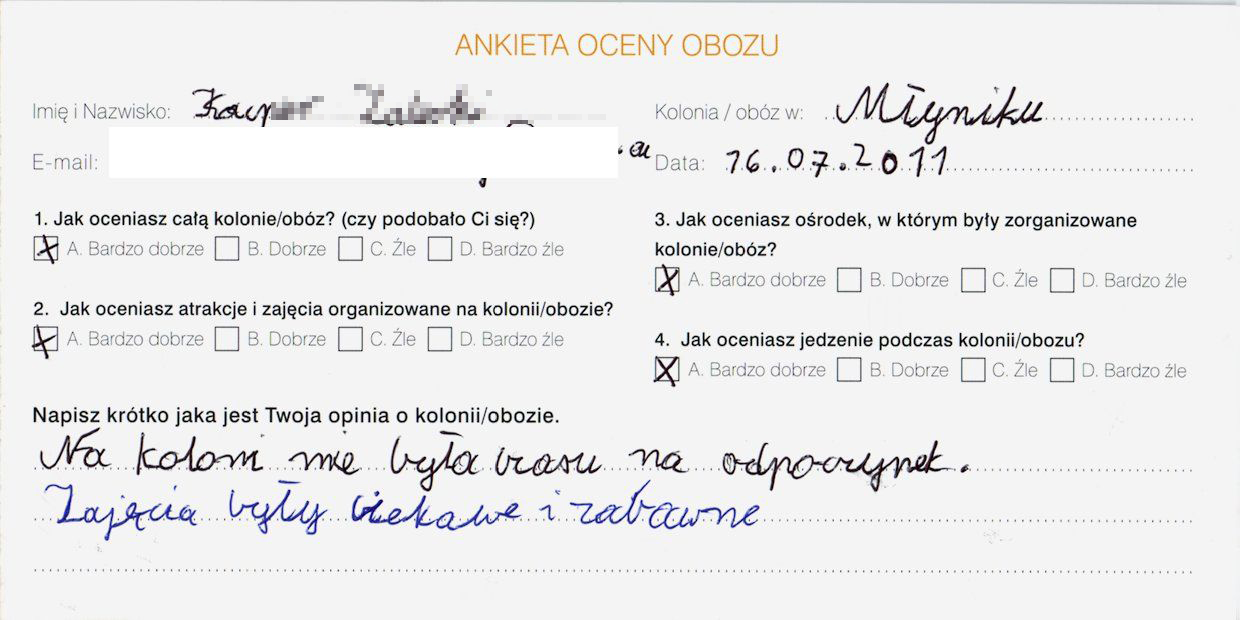 ANKIETA OCENY OBOZU
Imię i Nazwisko:
Kolonia / obóz w: Młyniku
E-mail:
Data: 16.07.2011
1. Jak oceniasz całą kolonie/obóz? (czy podobało Ci się?)
A. Bardzo dobrze B. Dobrze C. Źle D. Bardzo źle
2. Jak oceniasz atrakcje i zajęcia organizowane na kolonii/obozie?
A. Bardzo dobrze B. Dobrze C. Źle D. Bardzo źle
3. Jak oceniasz ośrodek, w którym były zorganizowane
kolonie/obóz?
A. Bardzo dobrze B. Dobrze C. Źle D. Bardzo źle
4. Jak oceniasz jedzenie podczas kolonii/obozu?
A. Bardzo dobrze B. Dobrze C. Źle D. Bardzo źle
Napisz krótko jaka jest Twoja opinia o kolonii/obozie.
Na koloni nie była czasu na odpoczynek.
Zajęcia były ciekawe i zabawne